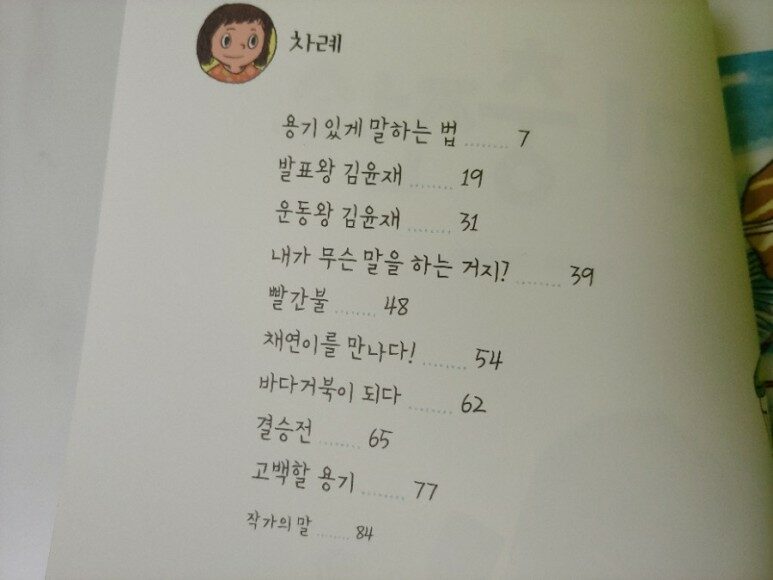 차례
용기 있게 말하는 법 ........ 7
발표왕 김윤재 ........ 19
운동왕 김윤재 ........ 31
내가 무슨 말을 하는 거지? ........ 39
빨간불 ........ 48
채연이를 만나다! ........ 54
바다거북이 되다 ........ 62
결승전 ........ 65
고백할 용기 ........ 77
작가의 말 ........ 84